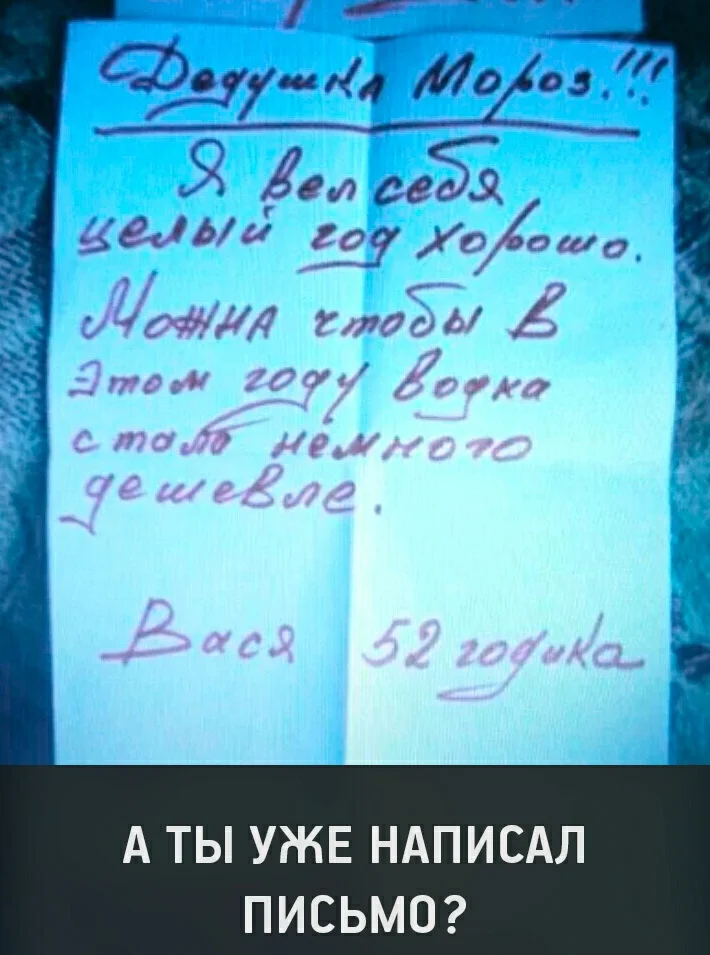 Дедушка Мороз!!!
Я вел себя
целый год хорошо.
Можна чтобы в
Этом году водка
стала немного
дешевле.
Вася 52 годика
А ТЫ УЖЕ НАПИСАЛ
ПИСЬМО?